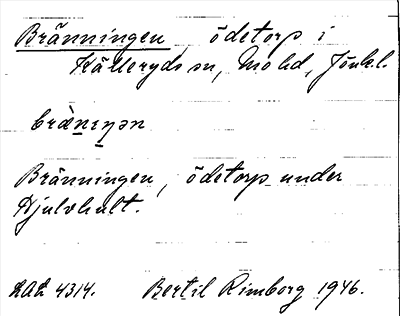 Bränningen, ödetorp i
Källeryds sn, Mo hd, Jönk.l.
bræ̀nıŋən
Bränningen, ödetorp under
Hjulvhult.
LAL 4314. Bertil Rimborg 1946.